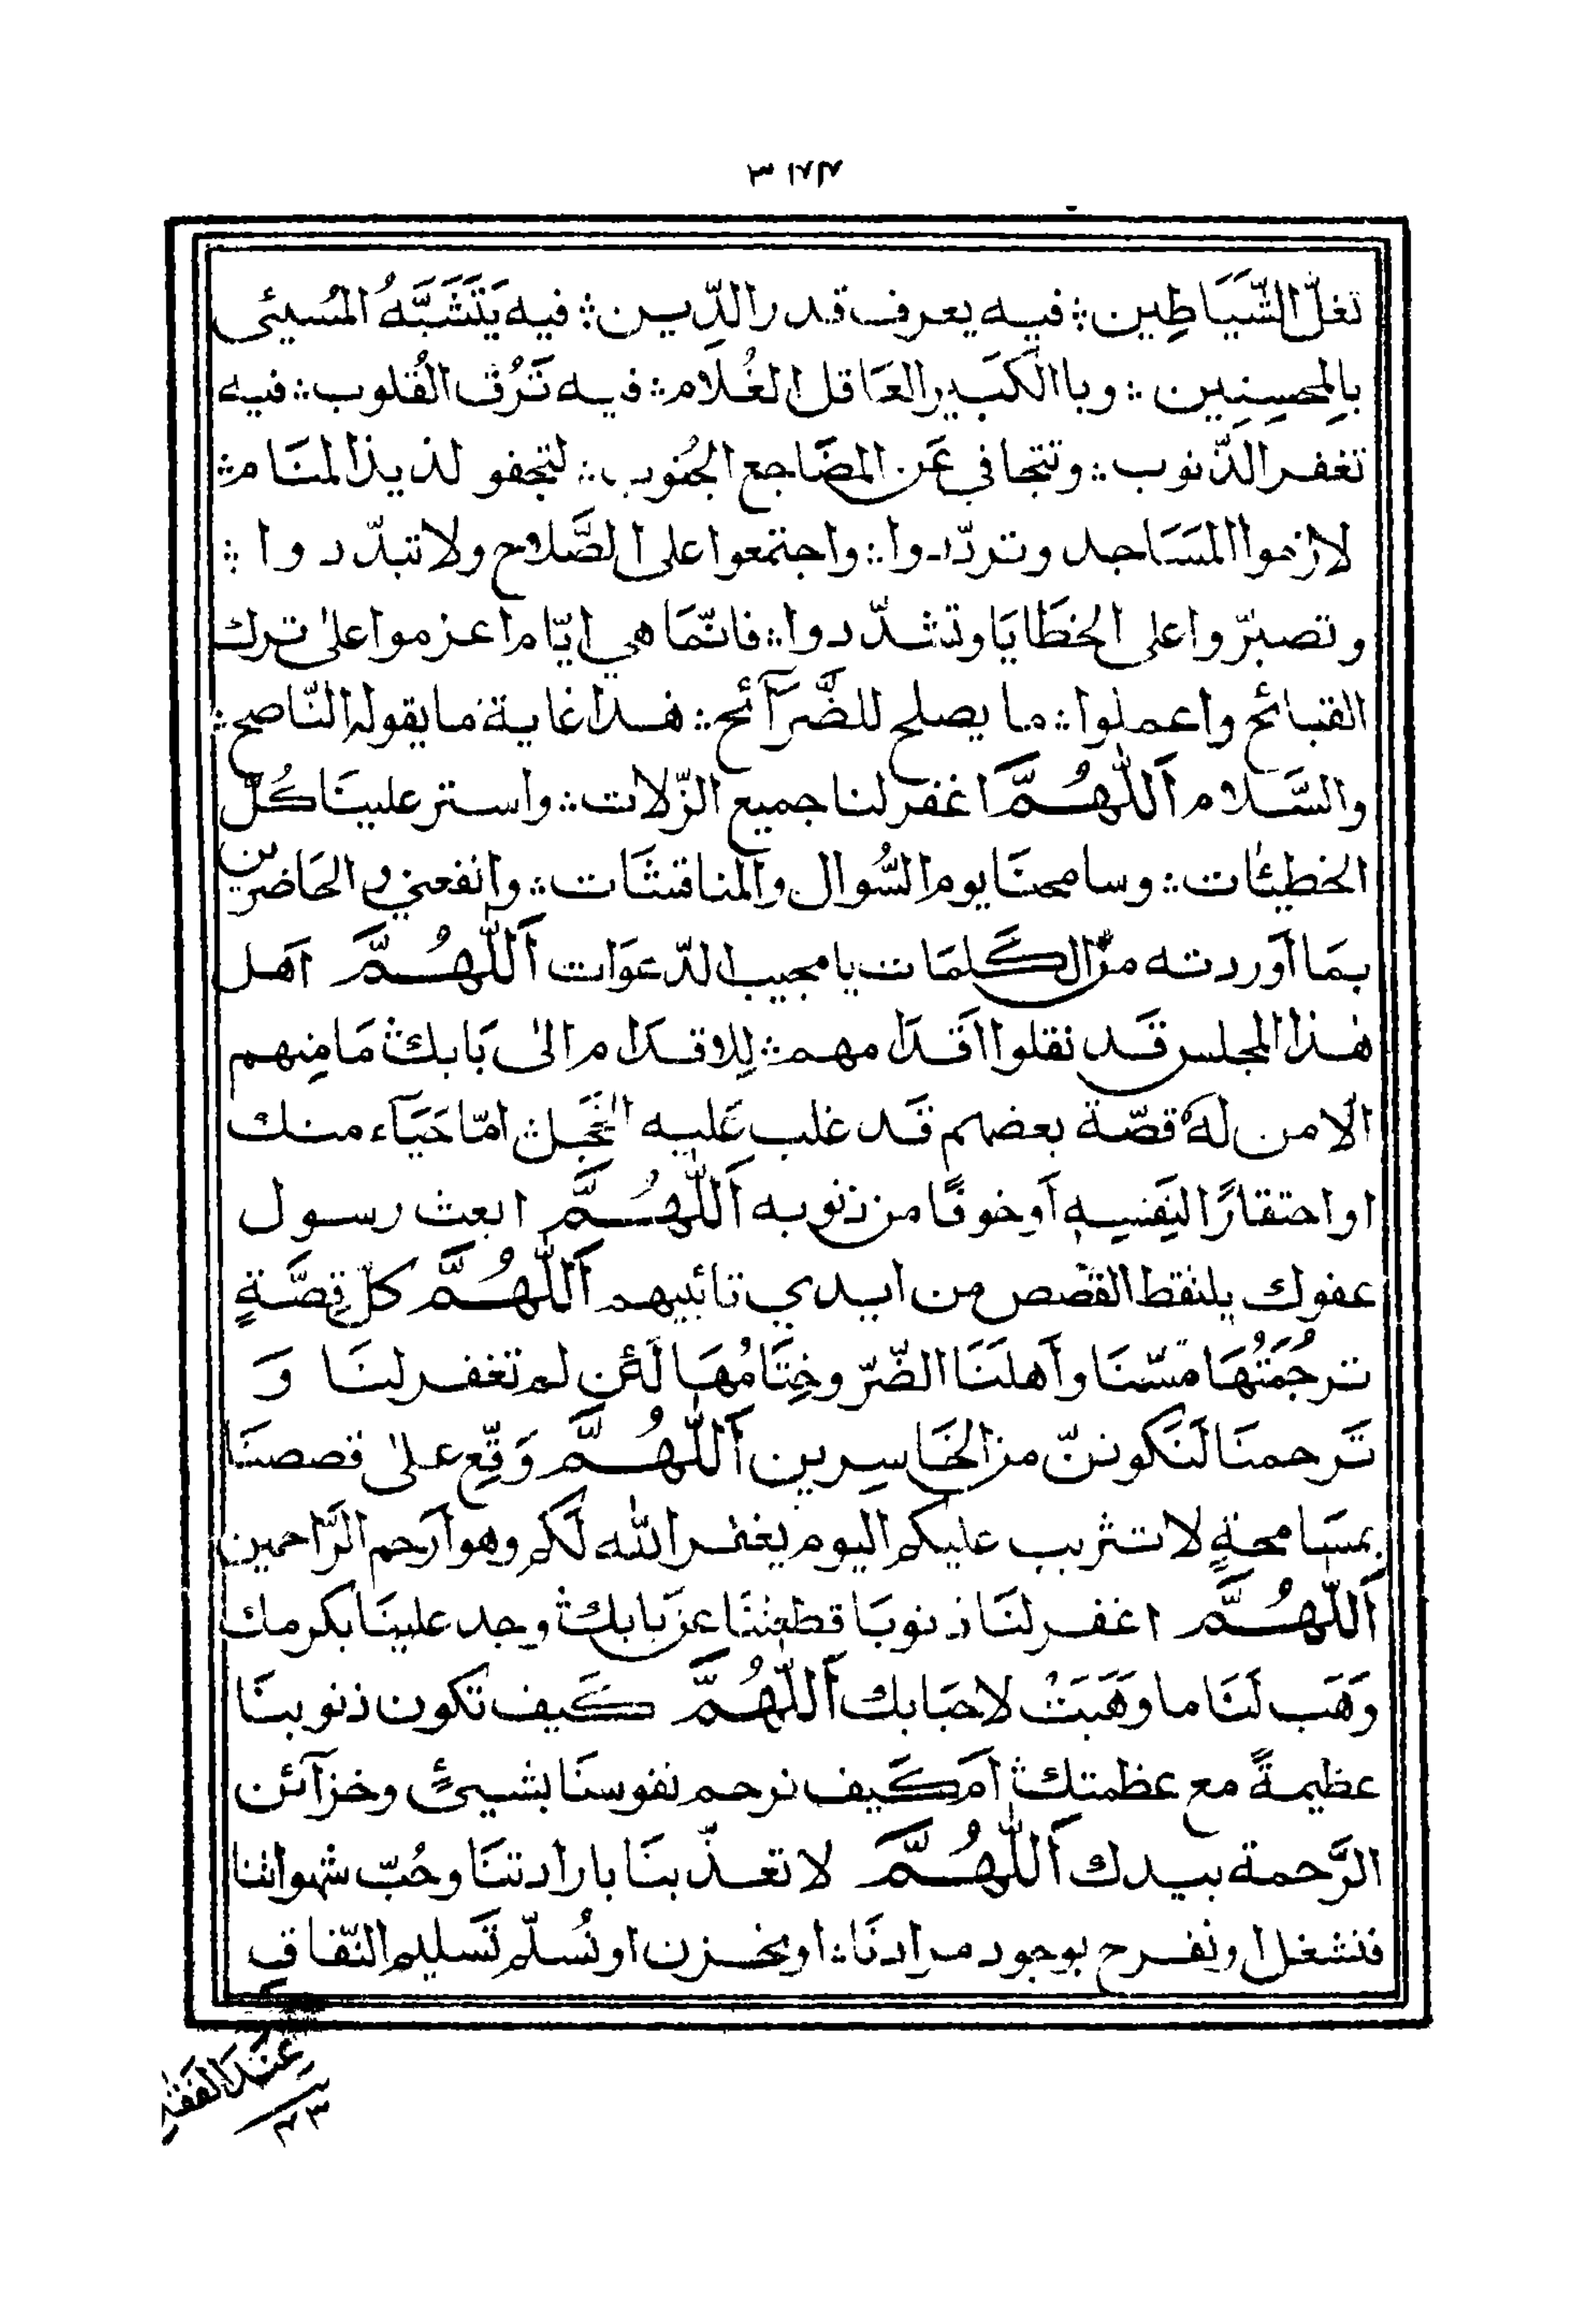 تغلّ الشَّيَاطِين ؞ فيه يعرف قدر الدِّين ؞ فيه يَتَشَبَّهُ المُسِيئى
بالمحسِنِين ؞ وباالكَبير العَاقل الغُلام ؞ فيه تَرُقّ القُلوب ؞ فيه
تغفر الذّنوب ؞ وتتجافى عَن المضَاجع الجُنوب ؞ لتجفو لذيذ المنَام ؞
لازموا المسَاجد وتردّدوا ؞ واجتمعوا على الصَّلاح ولا تبدّدوا ؞
وتصبّروا على الخطَايَا وتشدّدوا ؞ فانّمَا هي ايّام اعزموا على ترك
القبائح واعملوا ؞ ما يصلح للضَّرَآئح ؞ هذا غاية ما يقوله النّاصح ؞
والسَّلام اَللّٰهُمَّ اغفر لنا جميع الزّلات ؞ واستر علينَا كُلّ
الخطيئات ؞ وسامحنَا يوم السُّوال والمناقشَات ؞ وانفعني والحَاضرين
بمَا اَوردته من الكَلمَات يا مجيب الدّعوَات اَللّٰهُمَّ اَهل
هٰذا المجلس قَد نقلوا اَقدَامهم ؞ لِلاقدَام الىٰ بَابك مَا مِنهم
الّا من لهُ قصّة بعضهم قَد غلب عَليه الخَجل امّا حَيَاء منك
او احتقارًا لِنَفسِهِ اَو خوفًا من ذنوبه اَللّٰهُمَّ ابعث رسول
عفوك يلتقط القصص من ايدي تائبيهم اَللّٰهُمَّ كلّ قِصَّةٍ
ترجُمَتُهَا مَسّنَا وأهلَنَا الضّرّ وخِتَامُهَا لَئن لم تغفر لنَا وَ
تَرحمنَا لَنَكوننّ من الخَاسِرين اَللّٰهُمَّ وَقّع علىٰ قصصنَا
بمسَامحةٍ لا تثريب عليكم اليوم يغفر الله لَكم وهو اَرحم الرَّاحمين
اَللّٰهُمَّ اغفر لنَا ذنوبَا قطعتنَا عن بَابك وجد علينَا بكرمك
وَهَب لَنَا ما وَهَبَتْ لاحبَابك اَللّٰهُمَّ كَيف تكون ذنوبنَا
عظيمةً مع عظمتك اَم كَيف نرحم نفوسنَا بشيئٍ وخزآئن
الرَّحمة بيدك اَللّٰهُمَّ لا تعذّبنَا بارادتنَا وحُبّ شهواتنا
فنشغل او نفرح بوجود مرادنَا ؞ او نحزن او نُسلّم تَسليم النّفاق
عِندَ الفَقد